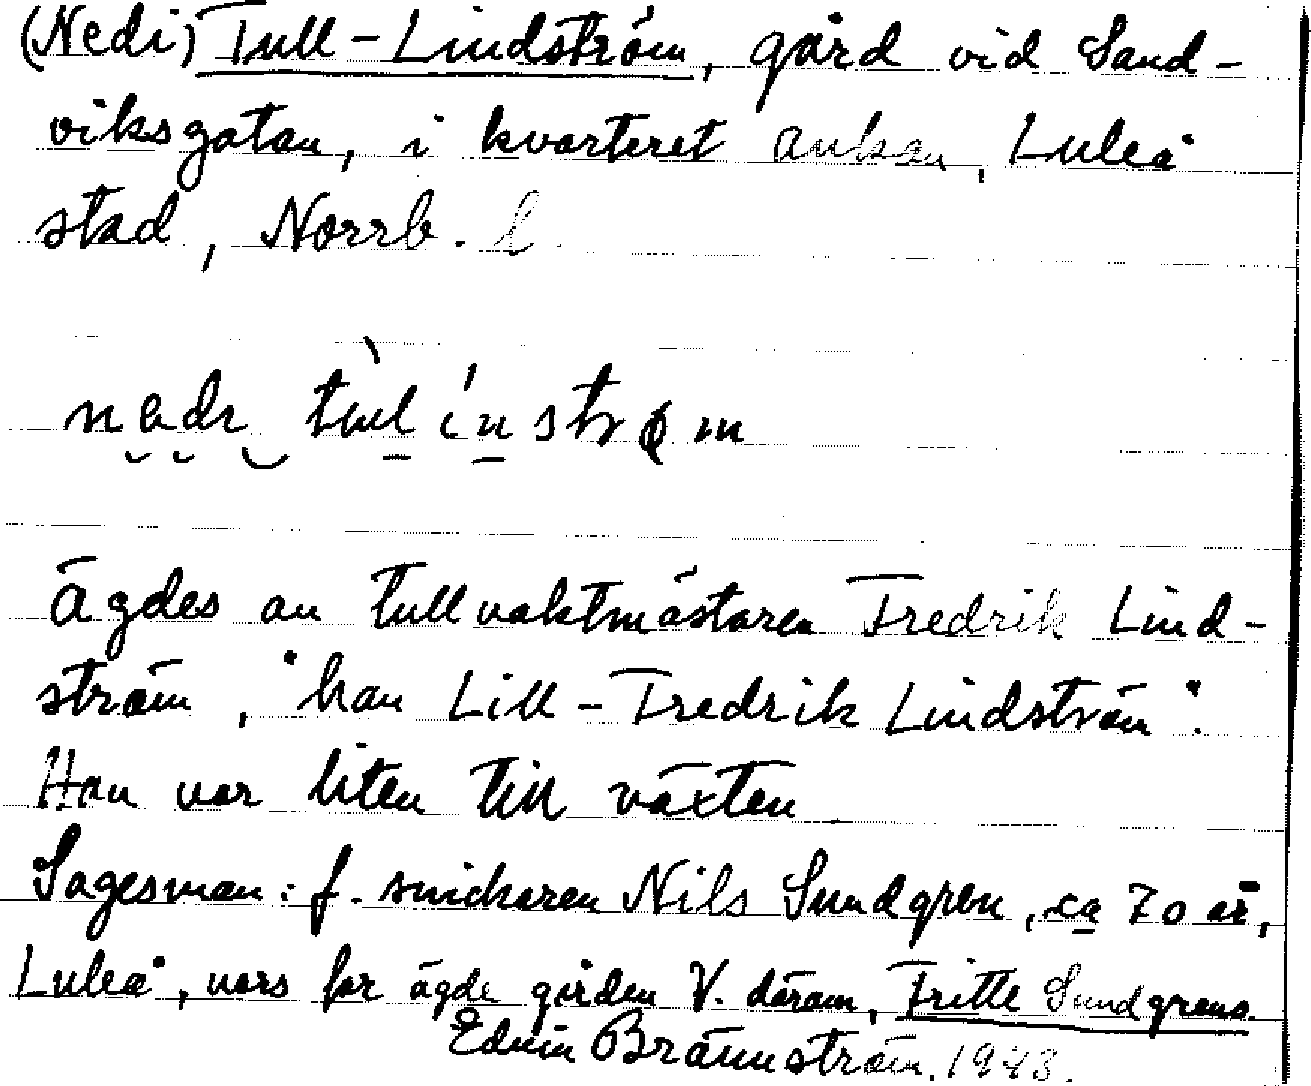 (Nedi) Tull-Lindström, gård vid Sand-
viksgatan, i kvarteret ankan, Luleå
stad, Norrb. l.
nedi tulinstrøm
Ägdes av tullvaktmästaren Fredrik Lind-
ström, "han Lill-Fredrik Lindström".
Han var liten till växten
Sagesman: f. snickaren Nils Sundgren, ca 70 år,
Luleå, vars far ägde gården V. därom, Fritte Sundgrens.
Edvin Brännström. 1943.